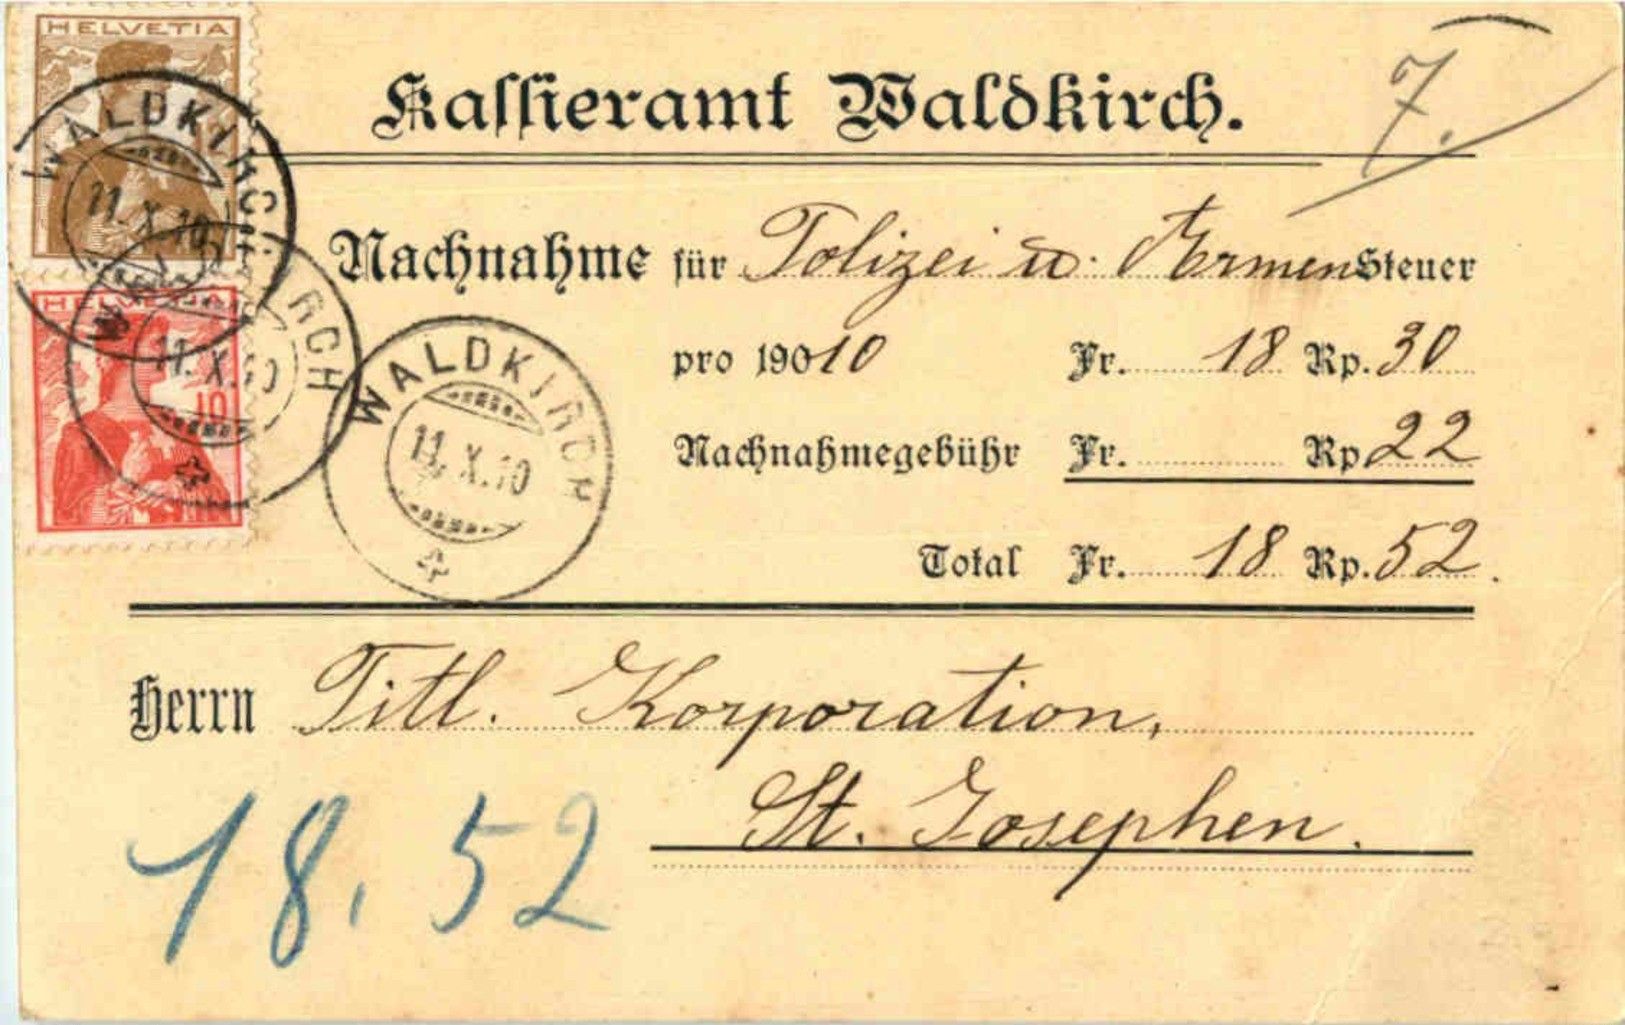 HELVETIA
Kassieramt Waldkirch.
7.
WALDKIRCH
11.X.10
Nachnahme für Polizei u. Armen Steuer
HELVETIA
10
WALDKIRCH
11.X.10
WALDKIRCH
11.X.10
pro 19010 Fr. 18 Rp. 30
Nachnahmegebühr Fr. Rp 22
Total Fr. 18 Rp. 52.
Herrn Titl. Korporation,
St. Josephen.
18.52